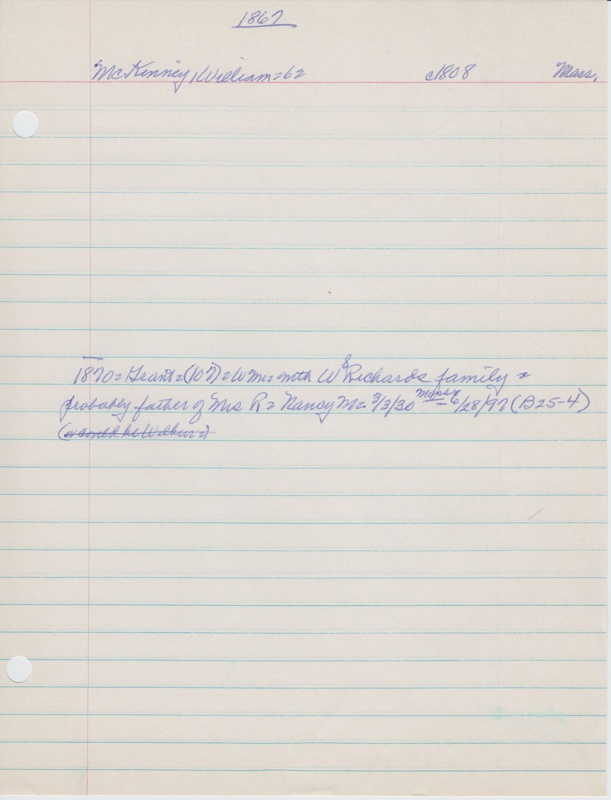 1867
McKinney, William = 62 c1808 Mass.
1870 = Grant = (107) = Wm = with W S Richards family =
probably father of Mrs R = Nancy M = 3/3/30 Mass - 6/28/97 (B25-4)
(or could be Wilbur =)